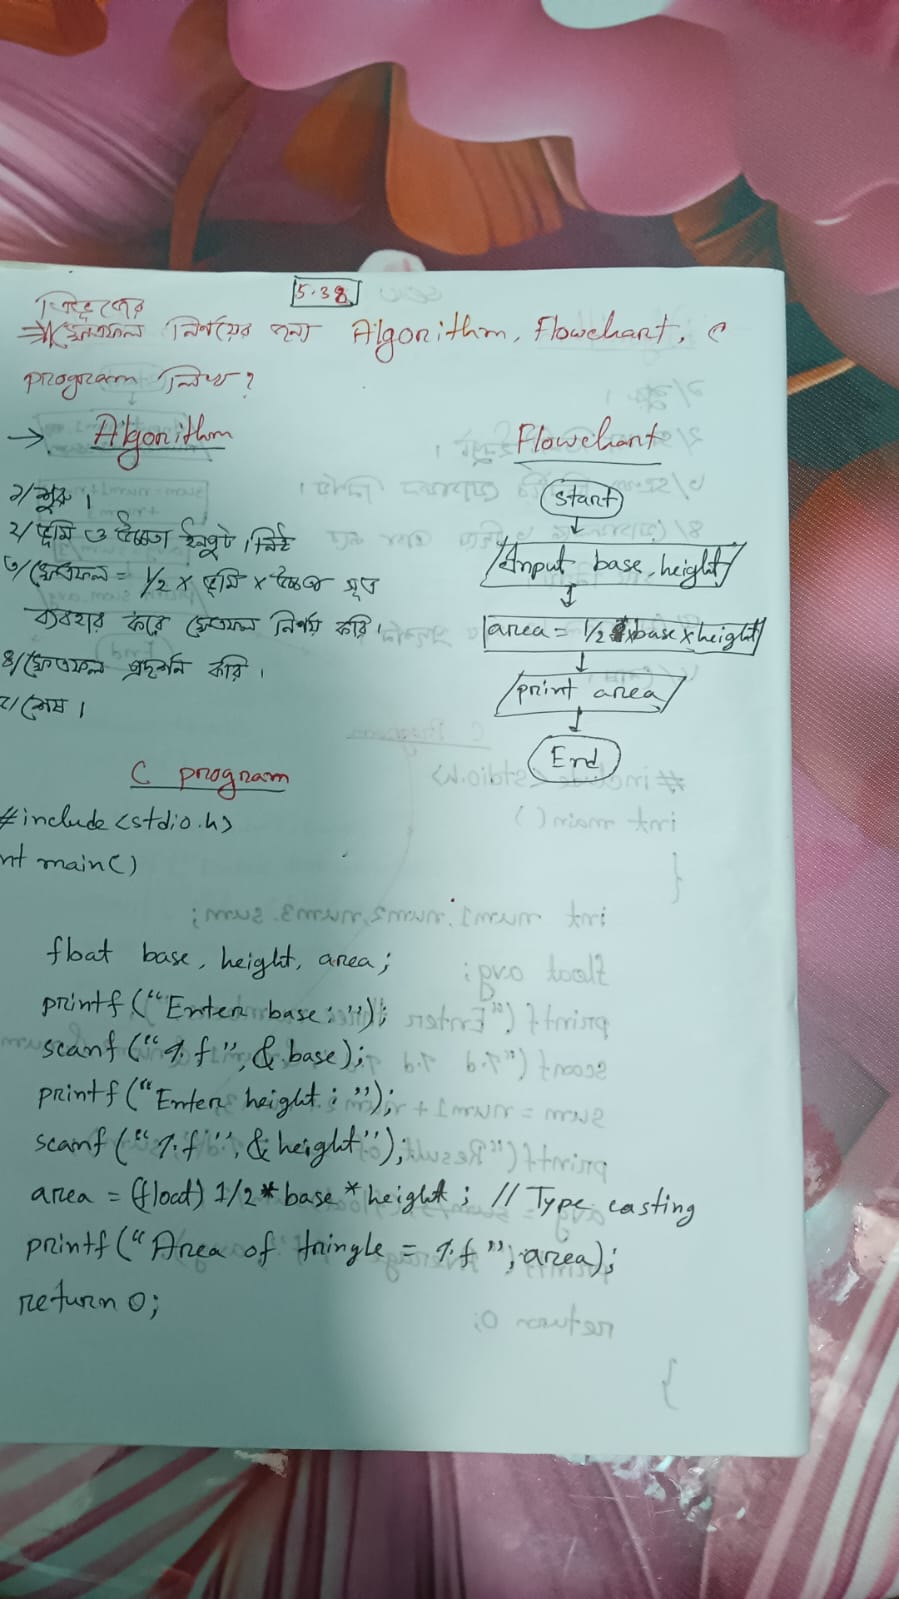 5.38
ত্রিভুজের
⇒ ক্ষেত্রফল নির্ণয়ের জন্য Algorithm, Flowchart, C
program লিখ?
→ Algorithm
১/ শুরু ।
২/ ভূমি ও উচ্চতা ইনপুট নিই
৩/ ক্ষেত্রফল = 1/2 × ভূমি × উচ্চতা সূত্র
ব্যবহার করে ক্ষেত্রফল নির্ণয় করি।
৪/ ক্ষেত্রফল প্রদর্শন করি ।
৫/ শেষ ।
Flowchart
Start
Input base, height
area = 1/2 × base × height
print area
End
C program
#include <stdio.h>
nt main()
float base, height, area;
printf("Enter base: ");
scanf("%f", & base);
printf("Enter height: ");
scanf("%f", & height");
area = (float) 1/2 * base * height; // Type casting
printf("Area of tringle = %f", area);
return 0;